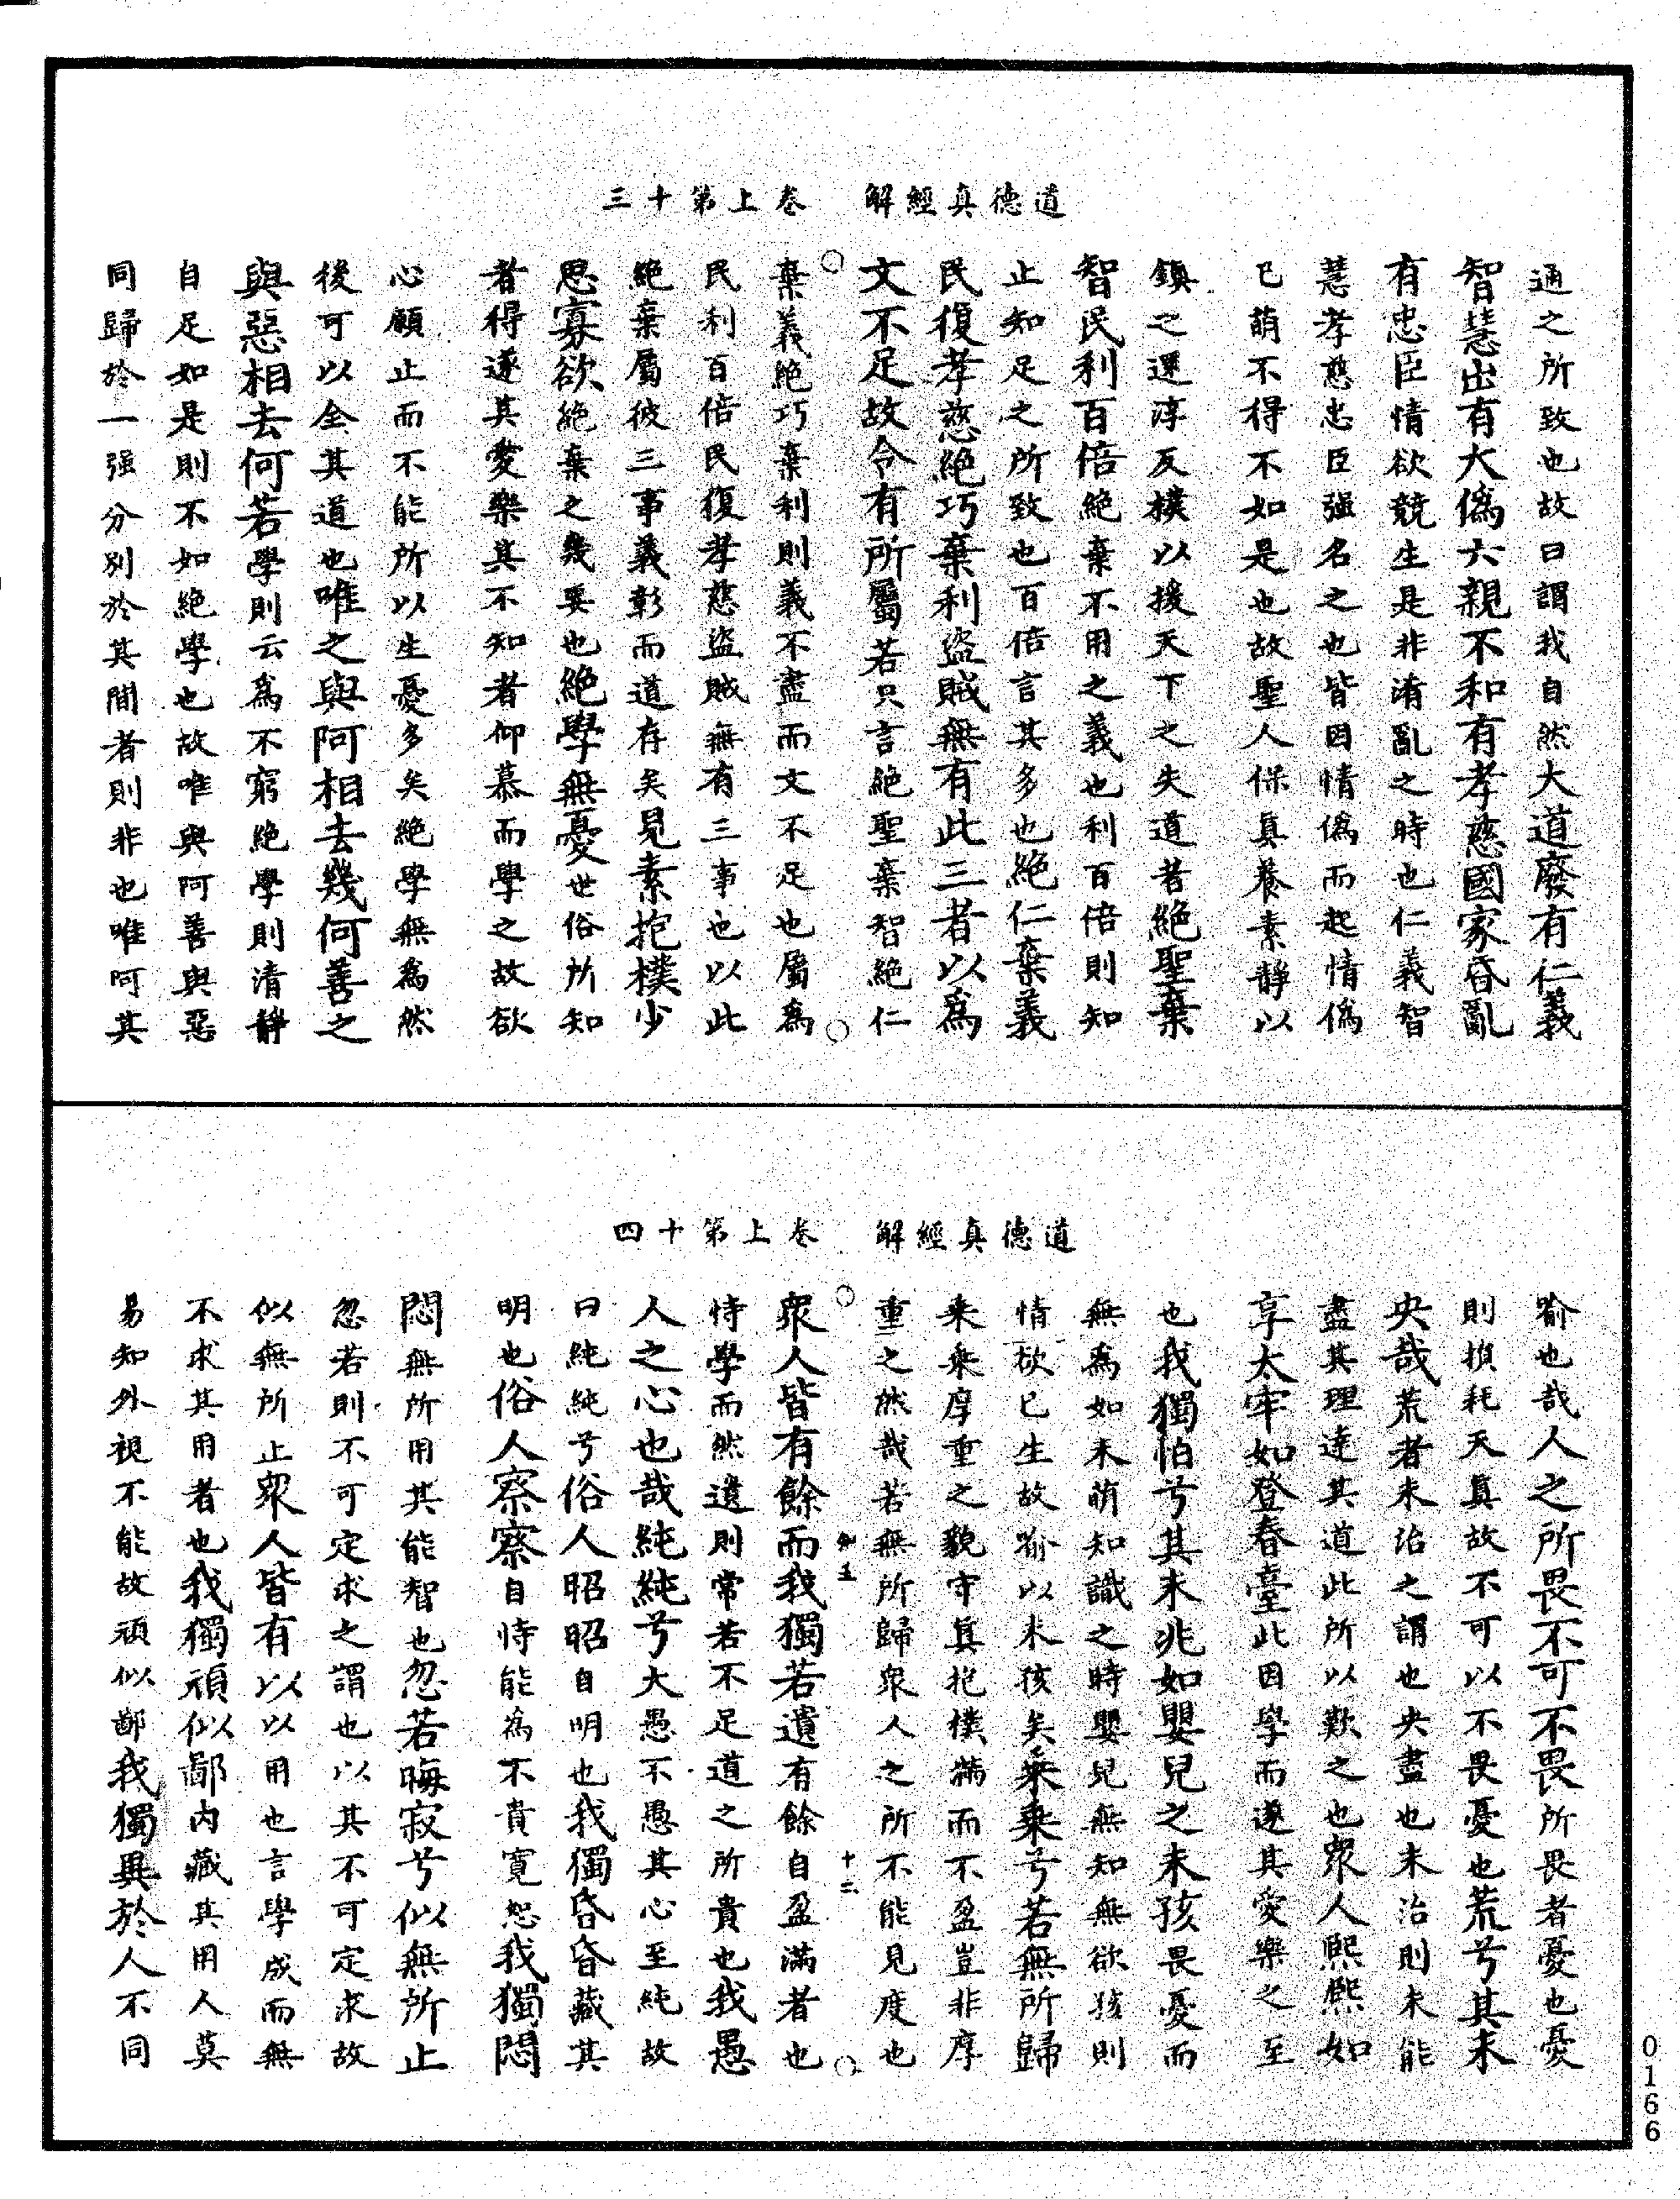 道德真經解　卷上第十三
通之所致也故曰謂我自然大道廢有仁義
智慧出有大偽六親不和有孝慈國家昏亂
有忠臣情欲競生是非淆亂之時也仁義智
慧孝慈忠臣强名之也皆因情偽而起情偽
已萌不得不如是也故聖人保真養素靜以
鎮之還淳反樸以援天下之失道者絕聖棄
智民利百倍絕棄不用之義也利百倍則知
止知足之所致也百倍言其多也絕仁棄義
民復孝慈絕巧棄利盜賊無有此三者以為
文不足故令有所屬若只言絕聖棄智絕仁
棄義絕巧棄利則義不盡而文不足也屬為
民利百倍民復孝慈盜賊無有三事也以此
絕棄屬彼三事義彰而道存矣見素抱樸少
思寡欲絕棄之幾要也絕學無憂世俗所知
者得遂其愛樂其不知者仰慕而學之故欲
心願止而不能所以生憂多矣絕學無為然
後可以全其道也唯之與阿相去幾何善之
與惡相去何若學則云為不窮絕學則清靜
自足如是則不如絕學也故唯與阿善與惡
同歸於一强分別於其間者則非也唯阿其
道德真經解　卷上第十四
喻也哉人之所畏不可不畏所畏者憂也憂
則損耗天真故不可以不畏憂也荒兮其未
央哉荒者未治之謂也央盡也未治則未能
盡其理達其道此所以歎之也眾人熙熙如
享太牢如登春臺此因學而遂其愛樂之至
也我獨怕兮其未兆如嬰兒之未孩畏憂而
無為如未萌知識之時嬰兒無知無欲孩則
情欲已生故喻以未孩矣乘乘兮若無所歸
乘乘厚重之貌守真抱樸滿而不盈豈非厚
重之然哉若無所歸眾人之所不能見度也
眾人皆有餘而我獨若遺有餘自盈滿者也
恃學而然遺則常若不足道之所貴也我愚
人之心也哉純純兮大愚不愚其心至純故
曰純純兮俗人昭昭自明也我獨昏昏藏其
明也俗人察察自恃能為不貴寬恕我獨悶
悶無所用其能智也忽若晦寂兮似無所止
忽若則不可定求之謂也以其不可定求故
似無所止眾人皆有以以用也言學成而無
不求其用者也我獨頑似鄙內藏其用人莫
易知外視不能故頑似鄙我獨異於人不同
十二
0166